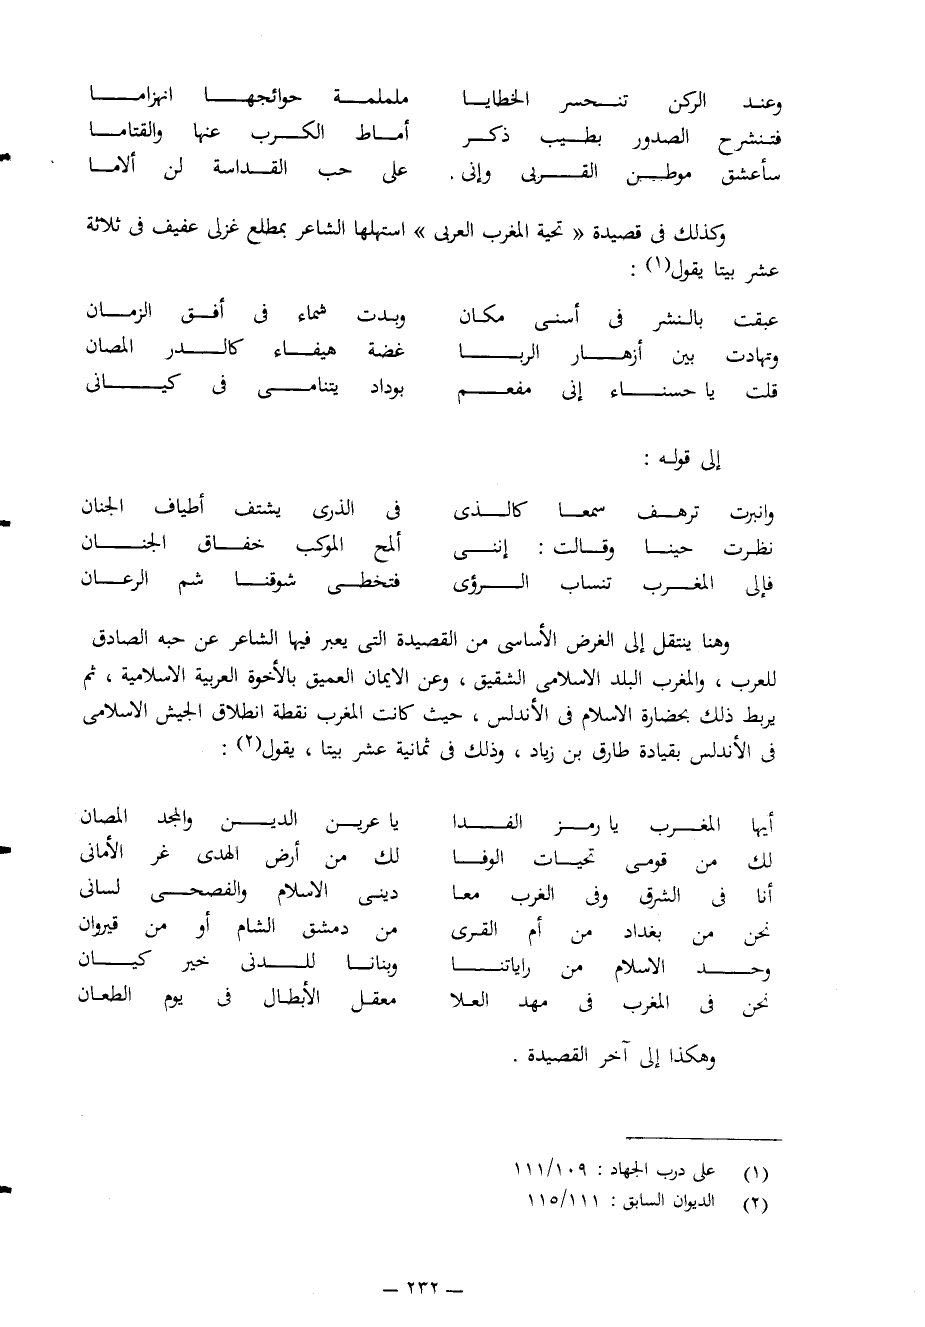 وعند الركن تنحسر الخطايا ململمة حوائجها انهزاما
فتنشرح الصدور بطيب ذكر أماط الكرب عنها والقتاما
سأعشق موطن القربى وإنى . على حب القداسة لن ألاما
وكذلك فى قصيدة « تحية المغرب العربى » استهلها الشاعر بمطلع غزلى عفيف فى ثلاثة
عشر بيتا يقول(١) :
عبقت بالنشر فى أسنى مكان وبدت شماء فى أفق الزمان
وتهادت بين أزهار الربا غضة هيفاء كالدر المصان
قلت يا حسناء إنى مفعم بوداد يتنامى فى كيانى
إلى قوله :
وانبرت ترهف سمعا كالذى فى الذرى يشتف أطياف الجنان
نظرت حينا وقالت : إننى ألمح الموكب خفاق الجنان
فإلى المغرب تنساب الرؤى فتخطى شوقنا شم الرعان
وهنا ينتقل إلى الغرض الأساسى من القصيدة التى يعبر فيها الشاعر عن حبه الصادق
للعرب ، والمغرب البلد الاسلامى الشقيق ، وعن الايمان العميق بالأخوة العربية الاسلامية ، ثم
يربط ذلك بحضارة الاسلام فى الأندلس ، حيث كانت المغرب نقطة انطلاق الجيش الاسلامى
فى الأندلس بقيادة طارق بن زياد ، وذلك فى ثمانية عشر بيتا ، يقول(٢) :
أيها المغرب يا رمز الفدا يا عرين الدين والمجد المصان
لك من قومى تحيات الوفا لك من أرض الهدى غر الأمانى
أنا فى الشرق وفى الغرب معا دينى الاسلام والفصحى لسانى
نحن من بغداد من أم القرى من دمشق الشام أو من قيروان
وحد الاسلام من راياتنا وبنانا للدنى خير كيان
نحن فى المغرب فى مهد العلا معقل الأبطال فى يوم الطعان
وهكذا إلى آخر القصيدة .
(١) على درب الجهاد : ١١١/١٠٩
(٢) الديوان السابق : ١١٥/١١١
— ٢٣٢ —